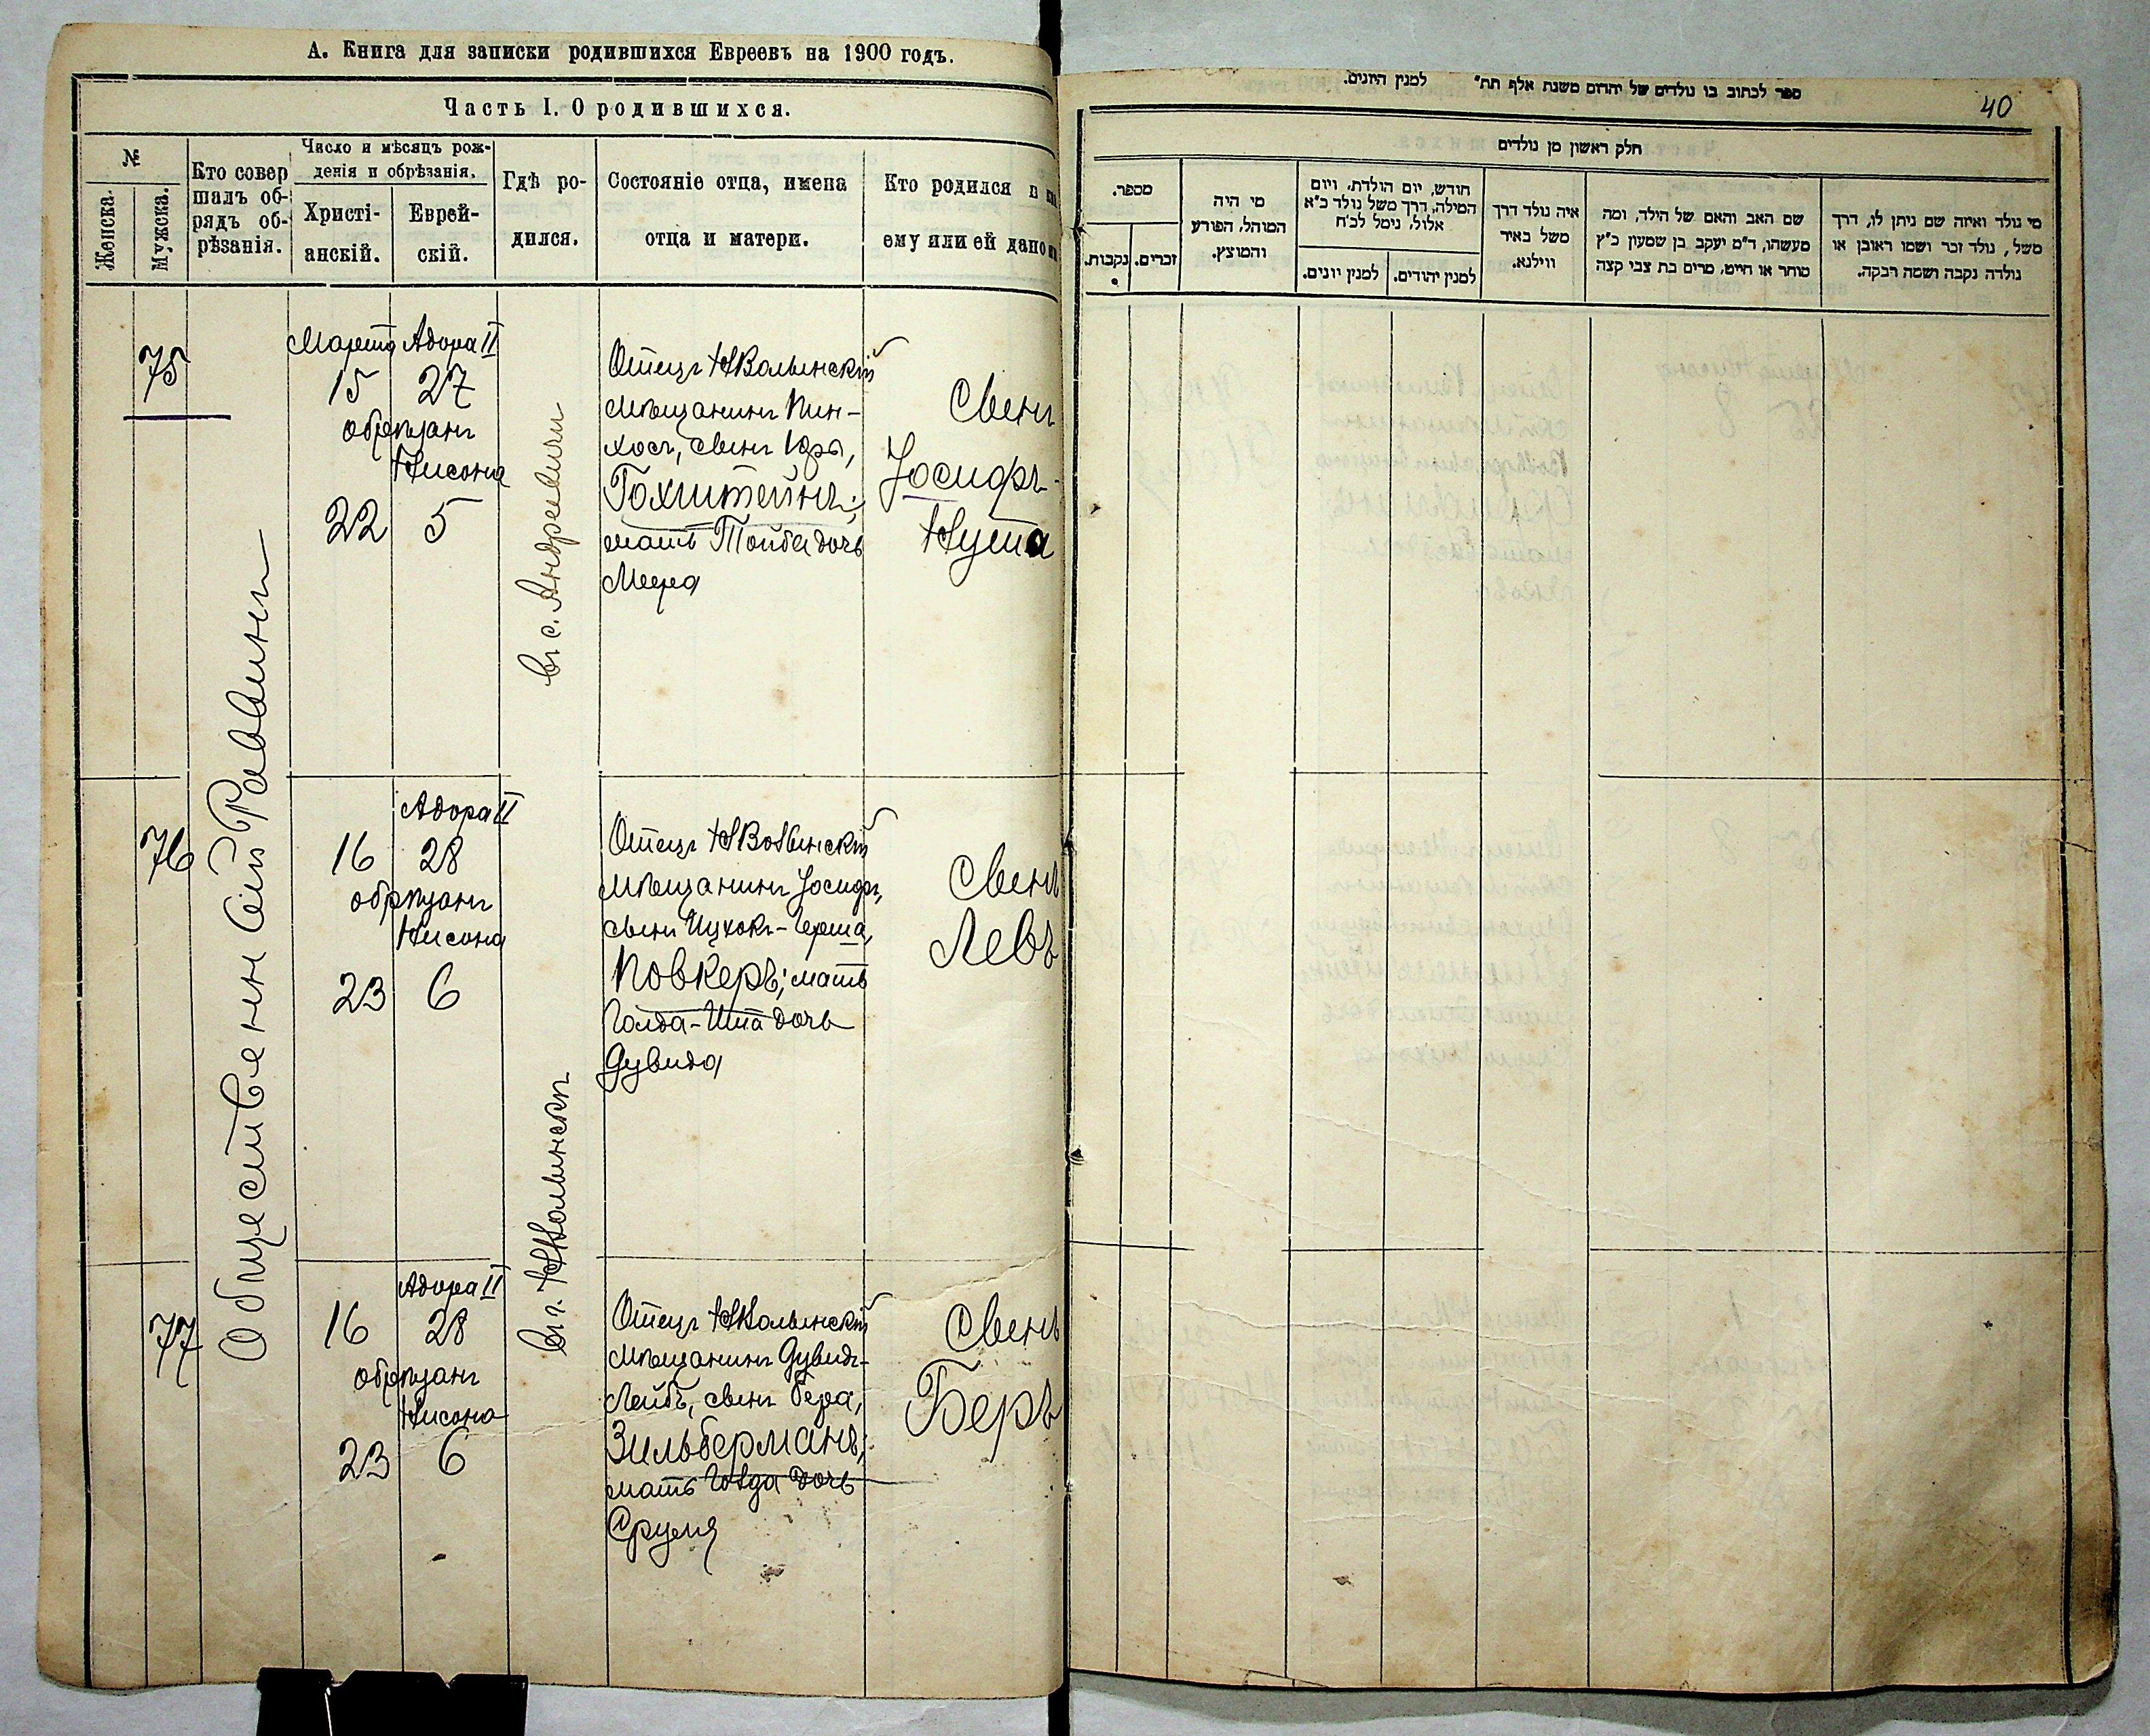 А. Книга для записки родившихся Евреевъ на 1900 годъ.
Часть I. О родившихся.
№
Женска.
Мужска.
Кто совер
шалъ об-
рядъ об-
рѣзанія.
Число и мѣсяцъ рож-
денія и обрѣзанія.
Христі-
анскій.
Еврей-
скій.
Гдѣ ро-
дился.
Состояніе отца, имена
отца и матери.
Кто родился и
ему или ей дано
Общественный Раввинъ
75
Марта
15
Адора II
27
обрѣзанъ
Нисона
22
5
въ с. Андреевичи
Отецъ НВолынскій
мѣщанинъ Пин-
хосъ, сынъ
Гохштейнъ;
мать Тойба дочь
Меера
Сынъ
Іосифъ-
Нута
76
Адора II
16
28
обрѣзанъ
Нисона
23
6
Отецъ НВолынскій
мѣщанинъ Іосифъ,
сынъ Ицхокъ-Герша,
Повкеръ; мать
Голда-Ита дочь
Дувида
Сынъ
Левъ
77
Адора II
16
28
обрѣзанъ
Нисона
23
6
въ г. НВолынскѣ
Отецъ НВолынскій
мѣщанинъ Дувидъ-
Лейбъ, сынъ Бера,
Зильберманъ;
мать Голда дочь
Сруля
Сынъ
Беръ
ספר לכתוב בו נולדים של יהודים משנת אלף תת״ למנין היונים.
40
חלק ראשון מן נולדים
מספר.
נקבות.
זכרים.
מי היה
המוהל, הפורע
והמוצץ.
חודש, יום הולדת, ויום
המילה, דרך משל נולד כ״א
אלול, נימל לכ״ח
למנין יונים.
למנין יהודים.
איה נולד דרך
משל באיר
ווילנא.
שם האב והאם של הילד, ומה
מעשהו, ד״מ יעקב בן שמעון כ״ץ
סוחר או חייט, מרים בת צבי קצה
מי נולד ואיזה שם ניתן לו, דרך
משל, נולד זכר ושמו ראובן או
נולדה נקבה ושמה רבקה.